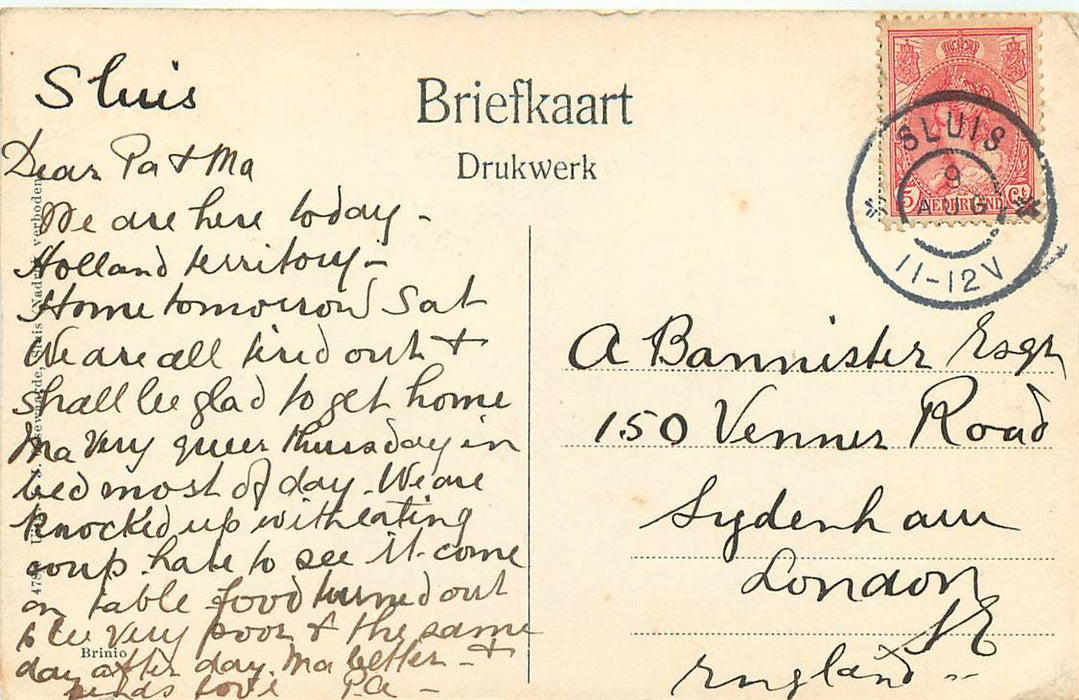 Sluis
Dear Pa + Ma
We are here today -
Holland territory -
Home tomorrow Sat
We are all tired out +
shall be glad to get home
Ma very queer thursday in
bed most of day. We are
knocked up with eating
soup. hate to see it come
on table food turned out
to be very poor + the same
day after day. Ma better - +
sends love Pa -
Briefkaart
Drukwerk
SLUIS
9
AUG
11-12V
5 NEDERLAND Ct
A Bannister Esqr
150 Venner Road
Sydenham
London
SE
England
Sluis. Nadruk verboden
Brinio